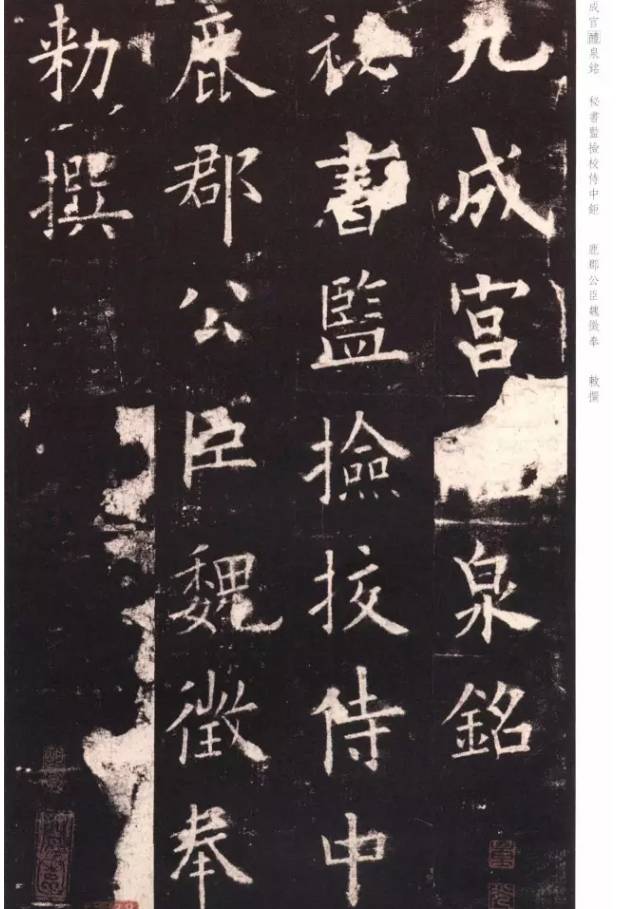 九成宮泉銘
秘書監撿挍侍中
鹿郡公臣魏徵奉
勑撰
成宫醴泉銘 秘書監撿校侍中鉅 鹿郡公臣魏徵奉 敕撰